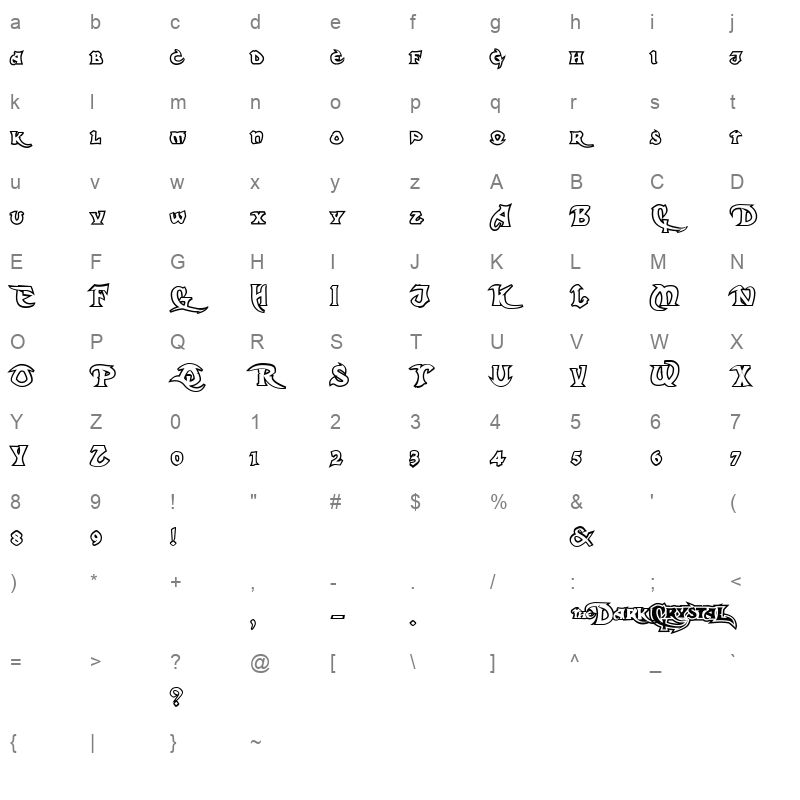 a b c d e f g h i j
A B C D E F G H I J
k l m n o p q r s t
K L M N O P Q R S T
u v w x y z A B C D
U V W X Y Z A B C D
E F G H I J K L M N
E F G H I J K L M N
O P Q R S T U V W X
O P Q R S T U V W X
Y Z 0 1 2 3 4 5 6 7
Y Z 0 1 2 3 4 5 6 7
8 9 ! " # $ % & ' (
8 9 ! &
) * + , - . / : ; <
, - . the DARK CRYSTAL
= > ? @ [ \ ] ^ _ `
?
{ | } ~